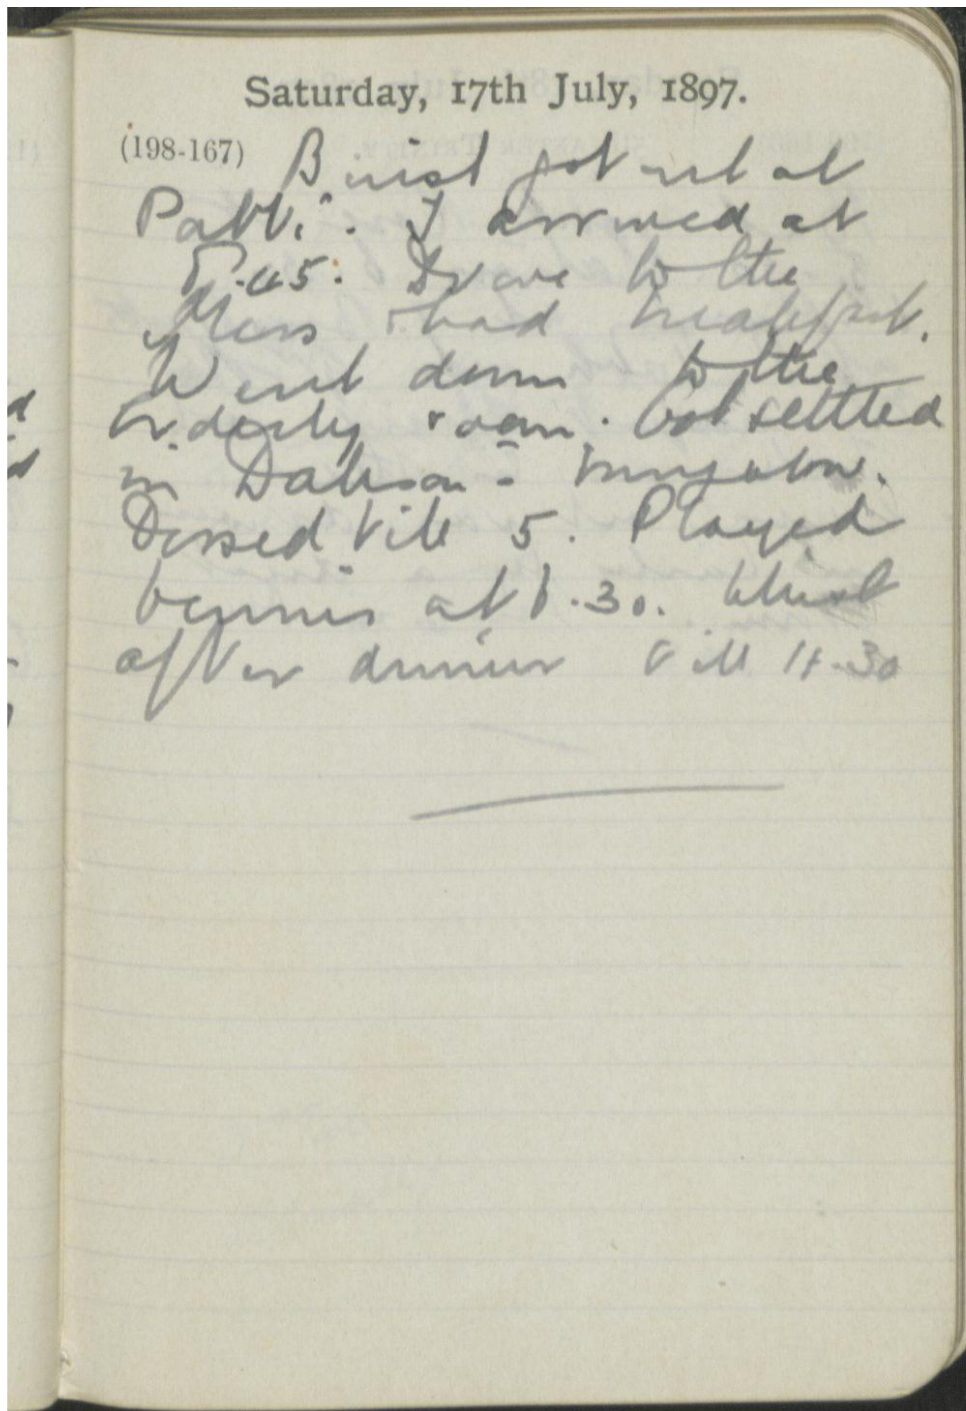 Saturday, 17th July, 1897.
(198-167) Buist got out at
Pabbi. I arrived at
8.45. Drove to the
Mess & had breakfast.
Went down to the
orderly room. Got settled
in bungalow.
Dossed till 5. Played
tennis at 6.30. Whist
after dinner till 11.30